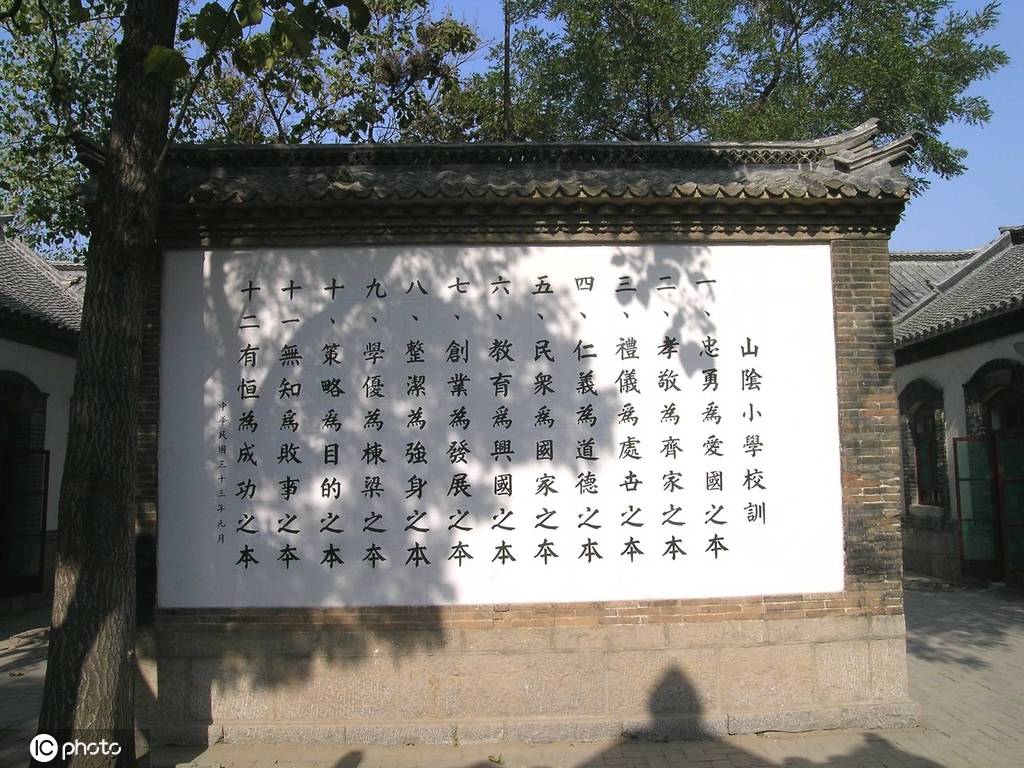 山陰小學校訓
一、忠勇為愛國之本
二、孝敬為齊家之本
三、禮儀為處世之本
四、仁義為道德之本
五、民衆為國家之本
六、教育為興國之本
七、創業為發展之本
八、整潔為強身之本
九、學優為棟梁之本
十、策略為目的之本
十一無知為敗事之本
十二有恒為成功之本
中华民國三十三年元月
IC photo